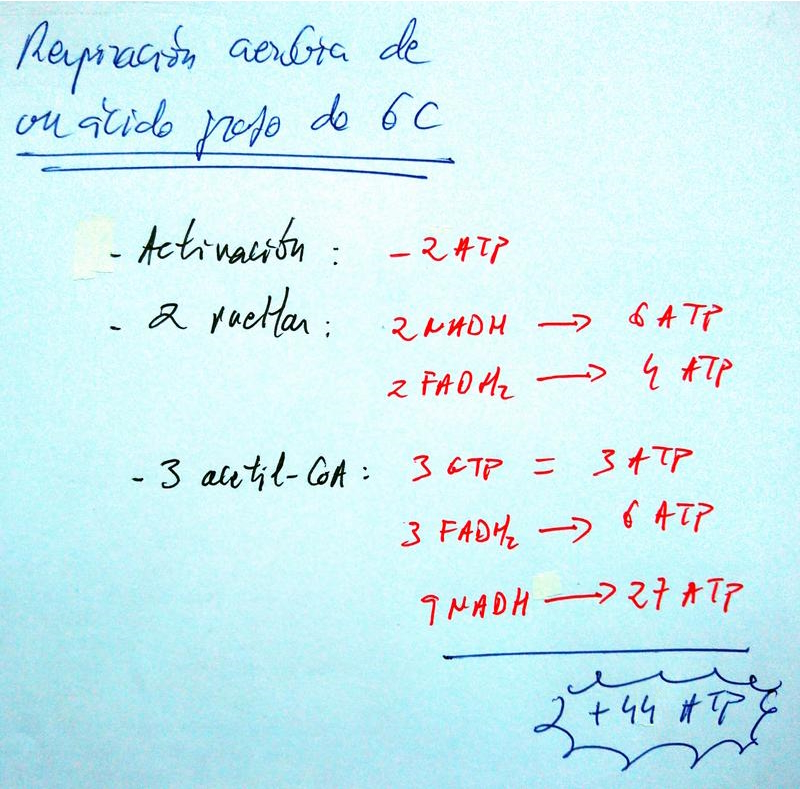 Respiración aerobia de
un ácido graso de 6C
- Activación: - 2 ATP
- 2 vueltas: 2 NADH → 6 ATP
2 FADH₂ → 4 ATP
- 3 acetil-CoA: 3 GTP = 3 ATP
3 FADH₂ → 6 ATP
9 NADH → 27 ATP
+44 ATP